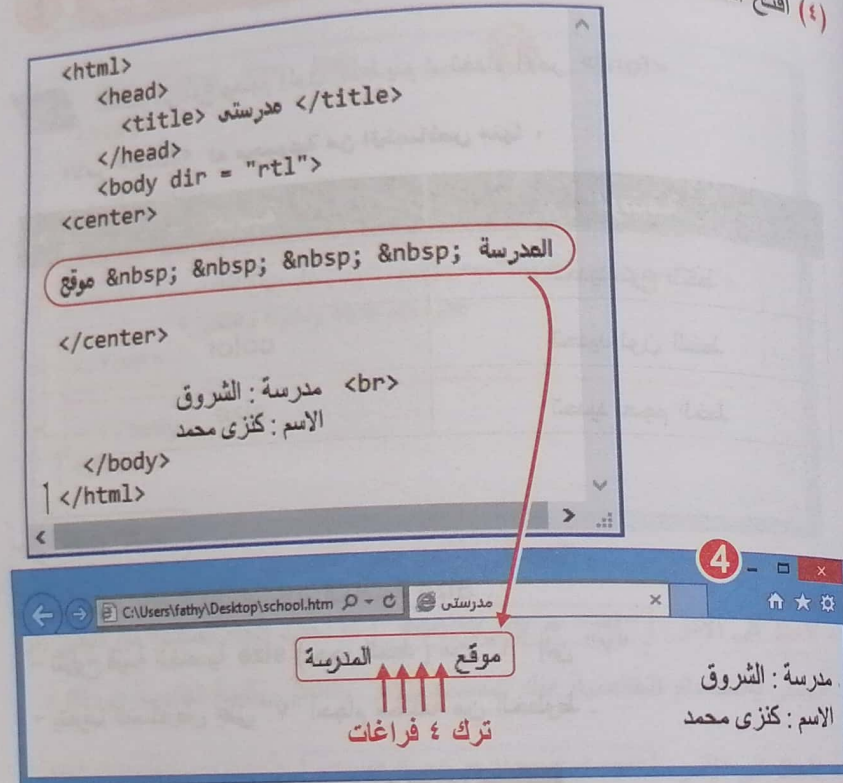 (٤) افتح
<html>
<head>
<title> مدرستى </title>
</head>
<body dir = "rtl">
<center>
موقع &nbsp; &nbsp; &nbsp; &nbsp; المدرسة
</center>
مدرسة : الشروق <br>
الاسم : كنزى محمد
</body>
</html>
4
C:\Users\fathy\Desktop\school.htm
مدرستى
موقع المدرسة
ترك ٤ فراغات
مدرسة : الشروق
الاسم : كنزى محمد